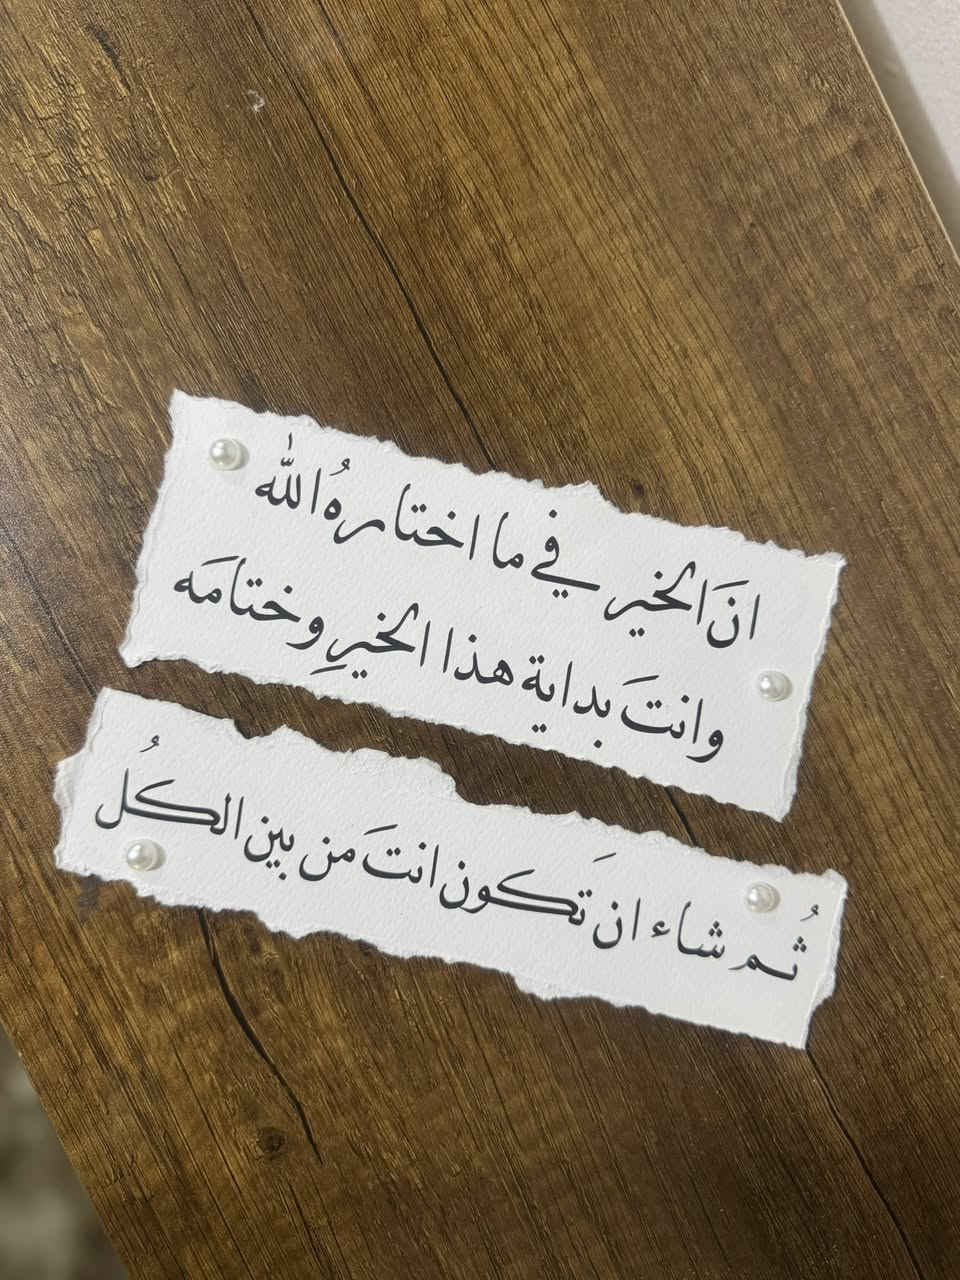 انَ الخير في ما اختارهُ الله
وانتَ بداية هذا الخيرِ وختامَه
ثُم شاء ان تَكون انتَ من بين الكُل